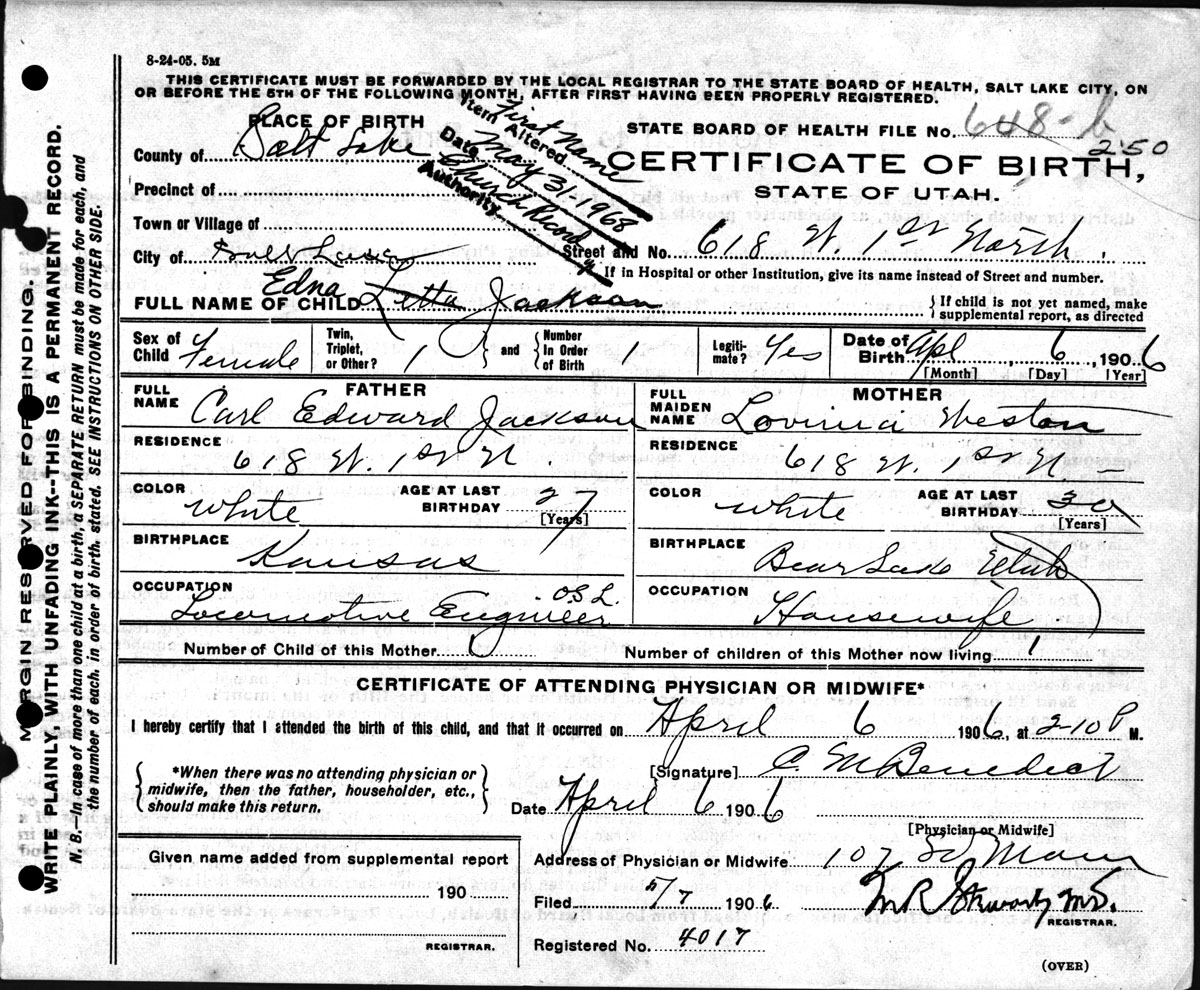 8-24-05. 5M
THIS CERTIFICATE MUST BE FORWARDED BY THE LOCAL REGISTRAR TO THE STATE BOARD OF HEALTH, SALT LAKE CITY, ON
OR BEFORE THE 5TH OF THE FOLLOWING MONTH, AFTER FIRST HAVING BEEN PROPERLY REGISTERED.
MARGIN RESERVED FOR BINDING.
WRITE PLAINLY, WITH UNFADING INK--THIS IS A PERMANENT RECORD.
N. B.—In case of more than one child at a birth, a SEPARATE RETURN must be made for each, and
the number of each, in order of birth, stated. SEE INSTRUCTIONS ON OTHER SIDE.
Item Altered First Name
Date May 31 1968
Authority Church Record
STATE BOARD OF HEALTH FILE No. 648-b
250
CERTIFICATE OF BIRTH,
STATE OF UTAH.
PLACE OF BIRTH
County of Salt Lake
Precinct of
Town or Village of
City of Salt Lake Street and No. 618 W. 1st North.
If in Hospital or other Institution, give its name instead of Street and number.
FULL NAME OF CHILD Edna Letta Jackson
If child is not yet named, make
supplemental report, as directed
Sex of Child Female
Twin, Triplet, or Other? 1 and Number In Order of Birth 1
Legiti-mate? Yes
Date of Birth Apl 6, 1906
[Month] [Day] [Year]
FATHER
FULL NAME Carl Edward Jackson
RESIDENCE 618 W. 1st N.
COLOR White AGE AT LAST BIRTHDAY 27
[Years]
BIRTHPLACE Kansas
OCCUPATION Locomotive Engineer OSL.
MOTHER
FULL MAIDEN NAME Lovinia Weston
RESIDENCE 618 W. 1st N.
COLOR White AGE AT LAST BIRTHDAY 30
[Years]
BIRTHPLACE Bear Lake Utah
OCCUPATION Housewife
Number of Child of this Mother Number of children of this Mother now living 1
CERTIFICATE OF ATTENDING PHYSICIAN OR MIDWIFE*
I hereby certify that I attended the birth of this child, and that it occurred on April 6 1906, at 2-10 P M.
*When there was no attending physician or
midwife, then the father, householder, etc.,
should make this return.
[Signature] C M Benedict
Date April 6 1906
[Physician or Midwife]
Given name added from supplemental report
190
REGISTRAR.
Address of Physician or Midwife 107 So Main
Filed 5/7 1906 M R M.D.
REGISTRAR.
Registered No. 4017
(OVER)